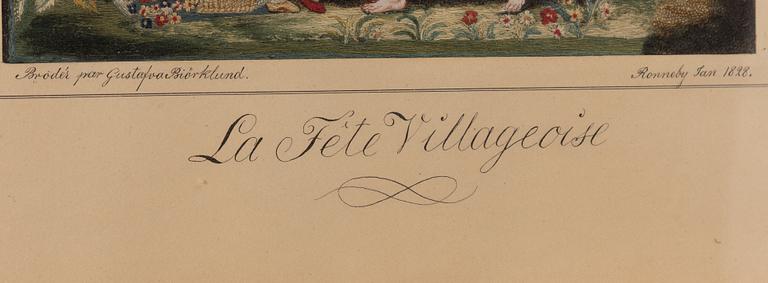 Brodér par Gustafva Biörklund.
Ronneby Jan 1828.
La Fête Villageoise